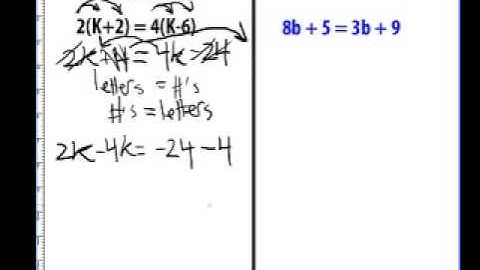 2(K+2) = 4(K-6)
2K+4 = 4K-24
letters = #'s
#'s = letters
2K-4K = -24-4
8b + 5 = 3b + 9